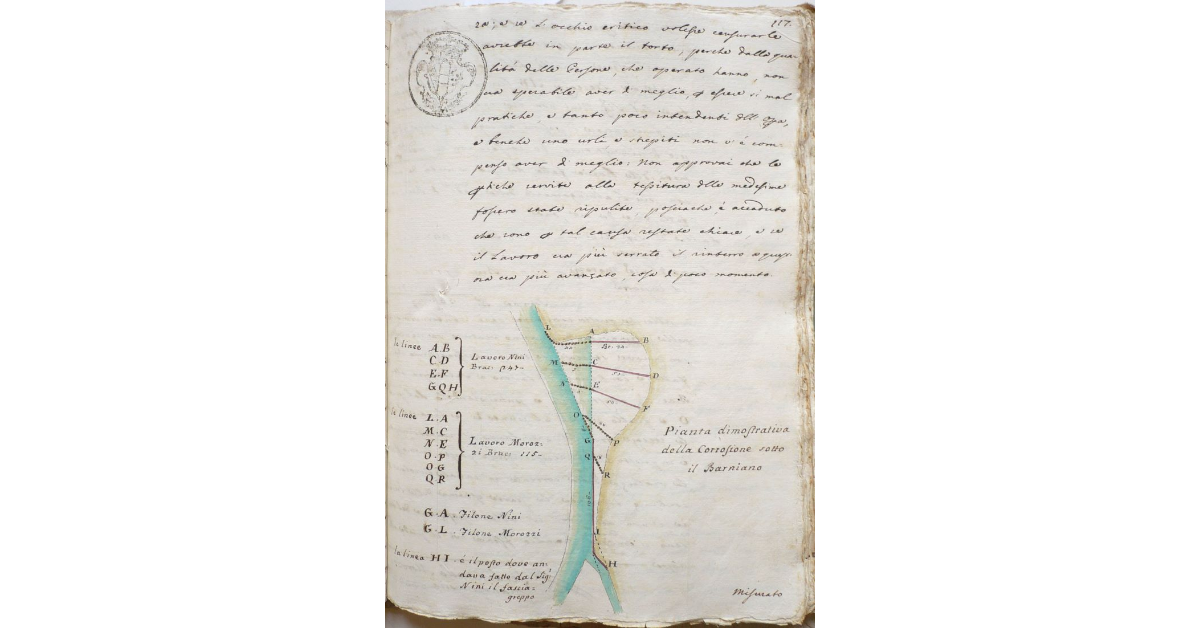 117.
za; e se l'occhio critico volesse censurarle
avrebbe in parte il torto, perche dalla qua-
lità delle Persone, che operato hanno, non
era sperabile aver di meglio, esere si mal
pratiche, e tanto poco intendenti dell'
e benche uno urli e strepiti non v'é com-
penso aver di meglio: Non approvai che le
servite alla tessitura dlle medesime
fossero state ripulite, posciache é accaduto
che sono tal causa restate chiare, e se
il Lavoro era più serrato il rinterro a quest'
ora era più avanzato, cosa di poco momento.
le linee A.B
C.D
E.F
GQH
Lavoro Nini
Brac: 747-
le linee L.A
M.C
N.E
O.P
O.G
Q.R
Lavoro Moroz:
zi Brac: 115-
G.A. Filone Nini
G.L. Filone Morozzi
la linea HI. é il posto dove an:
dava fatto dal Sig:
Nini il fascia:
greppo
L
A
B
Br.
M
C
D
N
E
F
O
P
G
Q
R
I
H
Pianta dimostrativa
della Corrosione sotto
il Barniano
Misurato